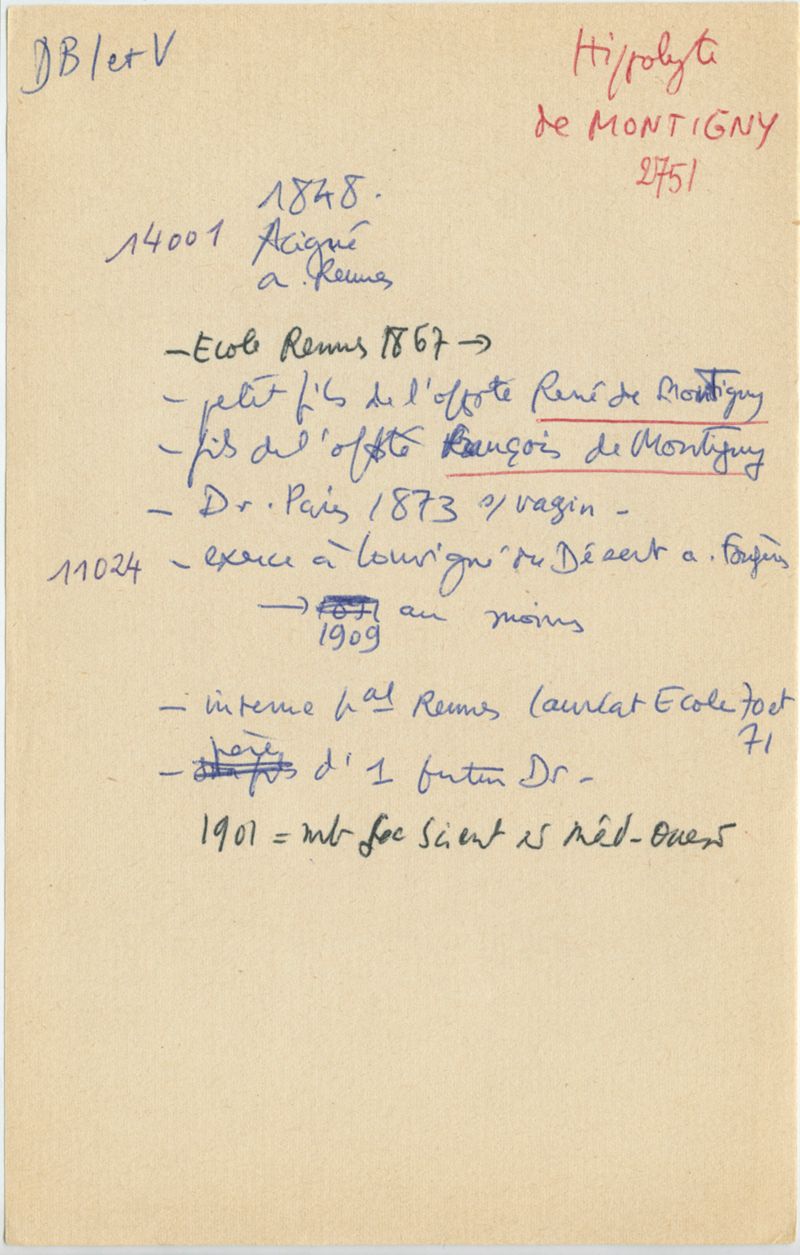 DB/et V
Hippolyte
de MONTIGNY
2751
1848.
14001 Acigné
a. Rennes
- Ecole Rennes 1867 →
- petit fils de l'offste René de Montigny
- fils de l'offsté François de Montigny
- Dr. Paris 1873 s/ vagin -
11024 - exerce à Louvigné du Désert a. Fougères
→ 1909 au moins
- interne pal Rennes lauréat Ecole 70 et
71
- père d' 1 futur Dr -
1901 = mb Soc Scient méd-Ouest